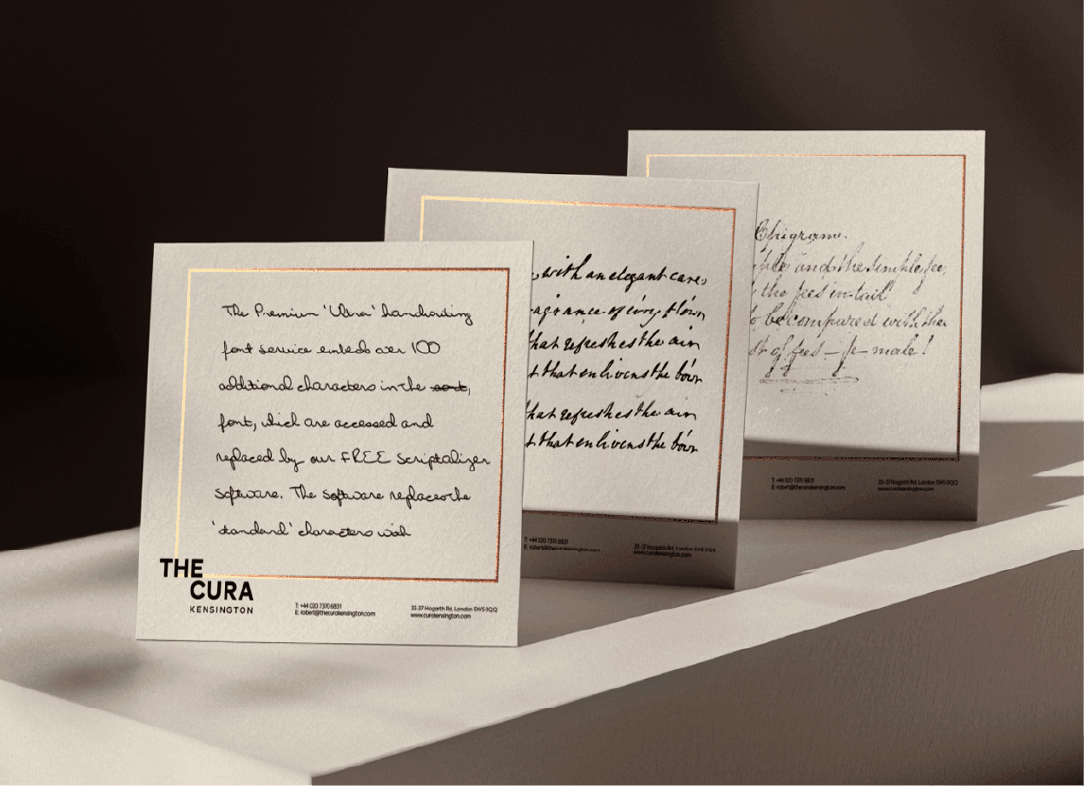 The Premium 'Ultra' handwriting
font service embeds over 100
additional characters in the sort,
font, which are accessed and
replaced by our FREE Scriptalizer
software. The software replaces the
'standard' characters with
THE
CURA
KENSINGTON
T: +44 020 7370 6831
E: robert@thecurakensington.com
33-37 Hogarth Rd, London SW5 0QQ
www.curakensington.com
with an elegant care,
that refreshes the air
that enlivens the
that refreshes the air
that enlivens the
T: +44 020 7370 6831
E: robert@thecurakensington.com
33-37 Hogarth Rd, London SW5 0QQ
www.curakensington.com
Epigram.
and the simple fee,
the fees in tail
be compared with the
of fees – fe – male!
T: +44 020 7370 6831
E: robert@thecurakensington.com
33-37 Hogarth Rd, London SW5 0QQ
www.curakensington.com